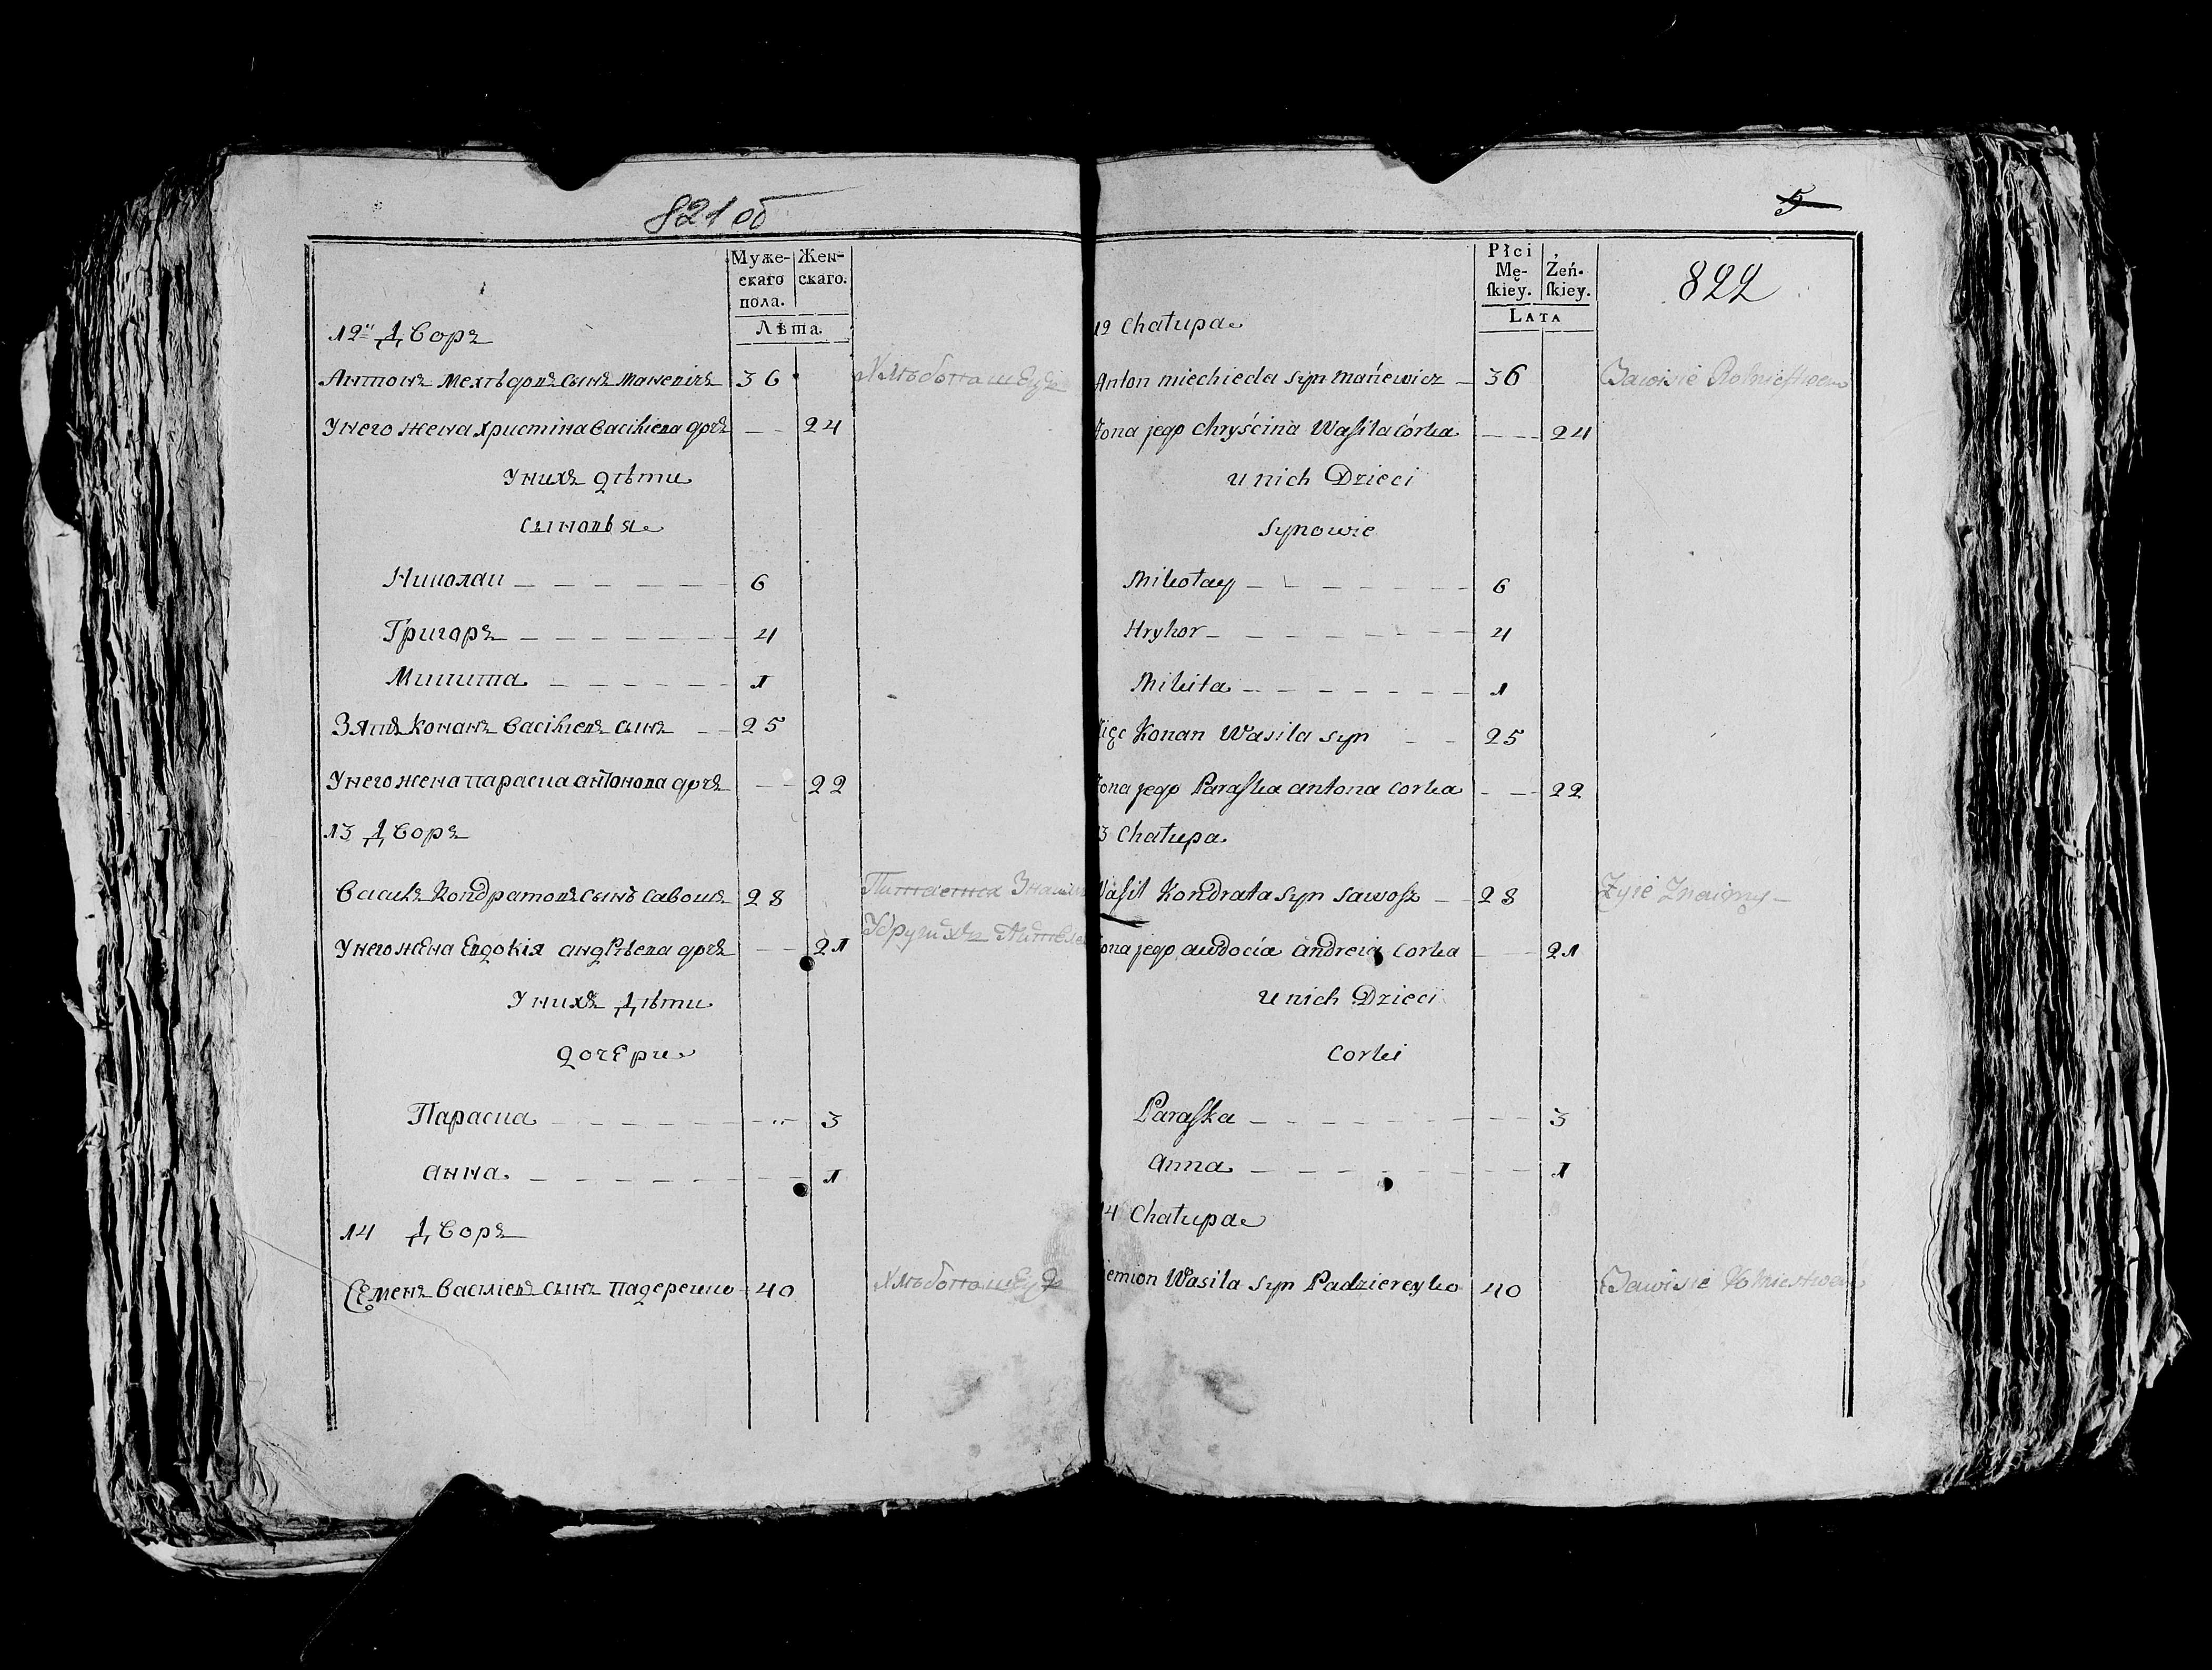 821 об
Муже-
скаго
пола.
Жен-
скаго.
Лѣта.
12й Дворъ
Антонъ Мехѣдовъ сынъ Маневичъ 36 Хлѣбопашецъ
У него жена Христина Василиева дочъ — — 24
У нихъ дѣти
сыновья
Николаи — — — — — — 6
Григоръ — — — — — — 4
Микита — — — — — — 1
Зять Конанъ Василиевъ сынъ — — 25
У него жена Параска Антонова дочъ — — 22
13 Дворъ
Василъ Кондратовъ сынъ Савошъ 28 Питается
У него жена Евдокія Андрѣева дочъ — — 21 У другихъ
У нихъ Дѣти
дочери
Параска — — — — — — 3
Анна — — — — — — 1
14 Дворъ
Семенъ Василиевъ сынъ Падерейко 40 Хлѣбопашецъ
5
822
Płci
Mę-
ſkiey.
Żeń-
ſkiey.
Lata
12 Chałupa
Anton Miechieda syn Mańewicz — 36 Bawi sie Rolnictwem
żona jego Chryścina Waſila Córka — — 24
u nich Dzieci
Synowie
Mikołay — — — — — — 6
Hryhor — — — — — — 4
Mikita — — — — — — 1
Zięc Konan Wasila syn — — 25
żona jego Paraſka Antona Corka — — 22
13 Chałupa
Waſil Kondrata syn Sawoſz — 28 Żyie
żona jego Awdocia Andreia Corka — — 21
u nich Dzieci
Corki
Paraſka — — — — — — 3
Anna — — — — — — 1
14 Chałupa
Siemion Wasila Syn Padziereyko 40 Bawi sie Rolnictwem